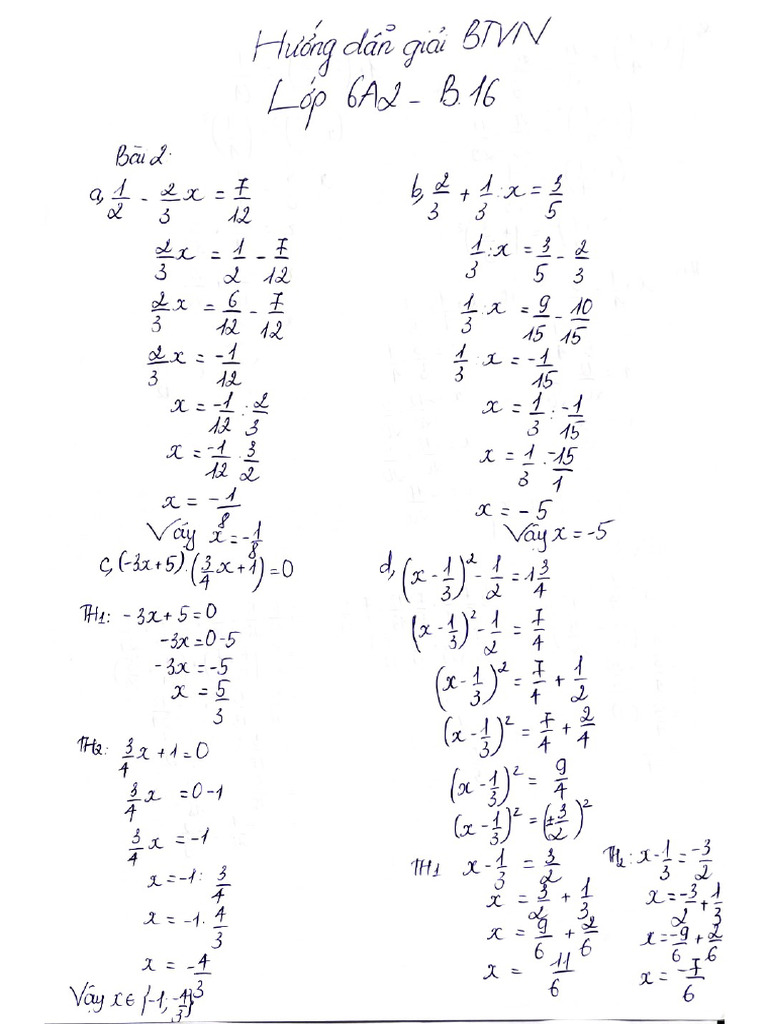 Hướng dẫn giải BTVN
Lớp 6A2 - B.16
Bài 2.
a, 1/2 - 2/3 x = 7/12
2/3 x = 1/2 - 7/12
2/3 x = 6/12 - 7/12
2/3 x = -1/12
x = -1/12 : 2/3
x = -1/12 . 3/2
x = -1/8
Vậy x = -1/8
b, 2/3 + 1/3 : x = 3/5
1/3 : x = 3/5 - 2/3
1/3 : x = 9/15 - 10/15
1/3 : x = -1/15
x = 1/3 : -1/15
x = 1/3 . -15/1
x = -5
Vậy x = -5
c, (-3x+5) . (3/4 x + 1) = 0
TH1: -3x + 5 = 0
-3x = 0 - 5
-3x = -5
x = 5/3
TH2: 3/4 x + 1 = 0
3/4 x = 0 - 1
3/4 x = -1
x = -1 : 3/4
x = -1 . 4/3
x = -4/3
Vậy x ∈ {-1; -4/3}
d, (x - 1/3)² - 1/2 = 1 3/4
(x - 1/3)² - 1/2 = 7/4
(x - 1/3)² = 7/4 + 1/2
(x - 1/3)² = 7/4 + 2/4
(x - 1/3)² = 9/4
(x - 1/3)² = (±3/2)²
TH1 x - 1/3 = 3/2
x = 3/2 + 1/3
x = 9/6 + 2/6
x = 11/6
TH2: x - 1/3 = -3/2
x = -3/2 + 1/3
x = -9/6 + 2/6
x = -7/6